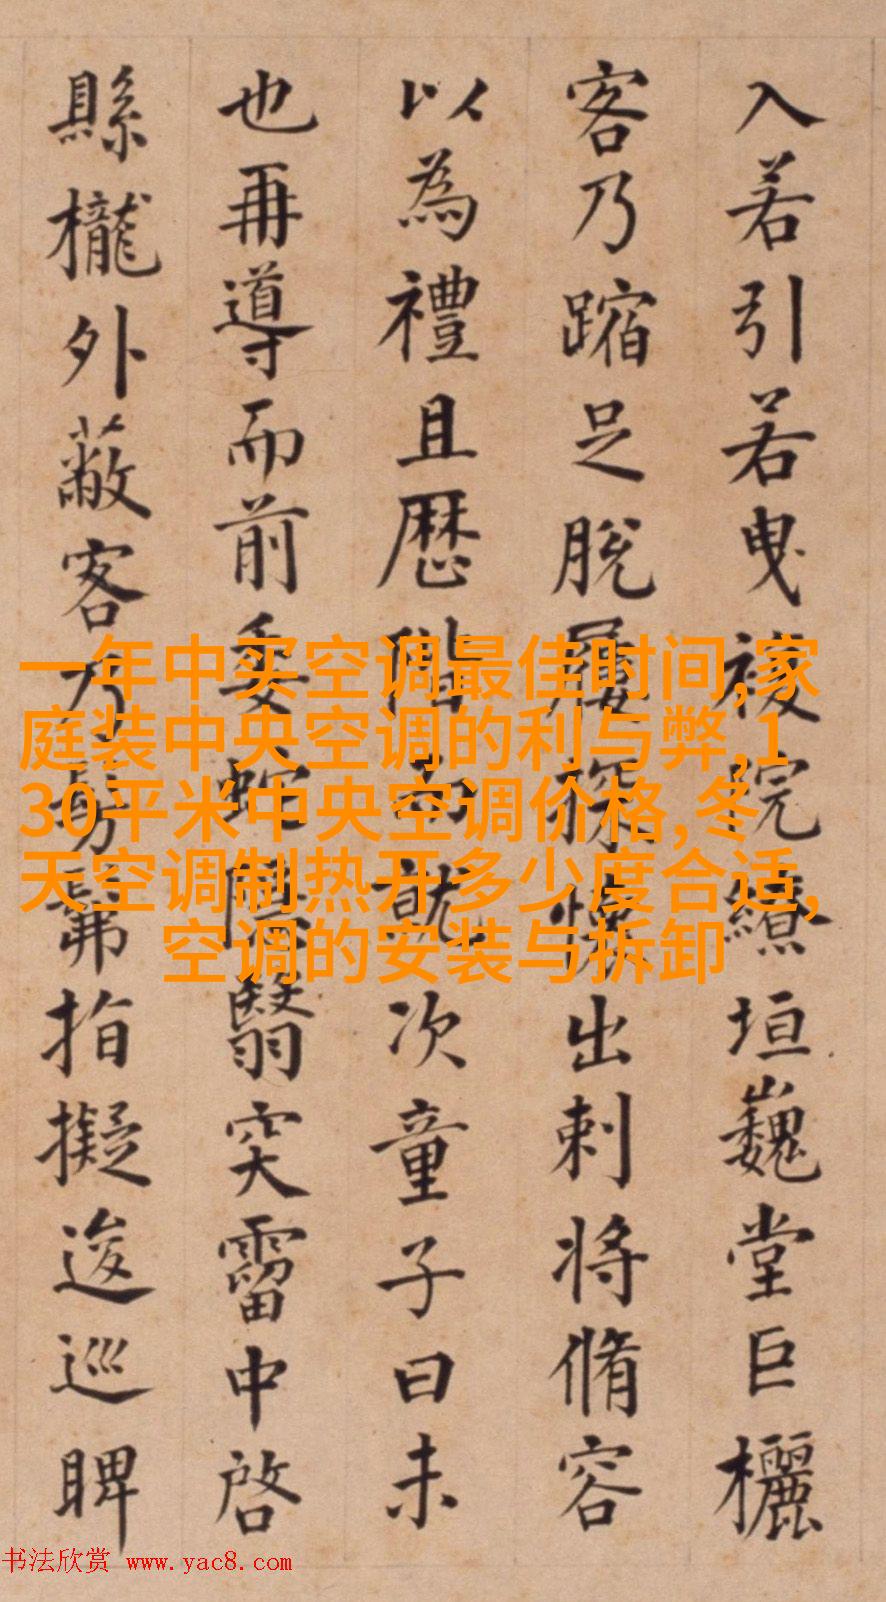 入若引若曳複院繚垣巍堂巨欐
客乃蹜足脫屨探懷出刺將脩容
以為禮且歷階而就次童子曰未
也再導而前委蛇隱翳穾霤中啓
縣櫳外蔽客乃髣髴指擬逡巡睥
一年中买空调最佳时间,家
庭装中央空调的利与弊,1
30平米中央空调价格,冬
天空调制热开多少度合适,
空调的安装与拆卸
书法欣赏 www.yac8.com